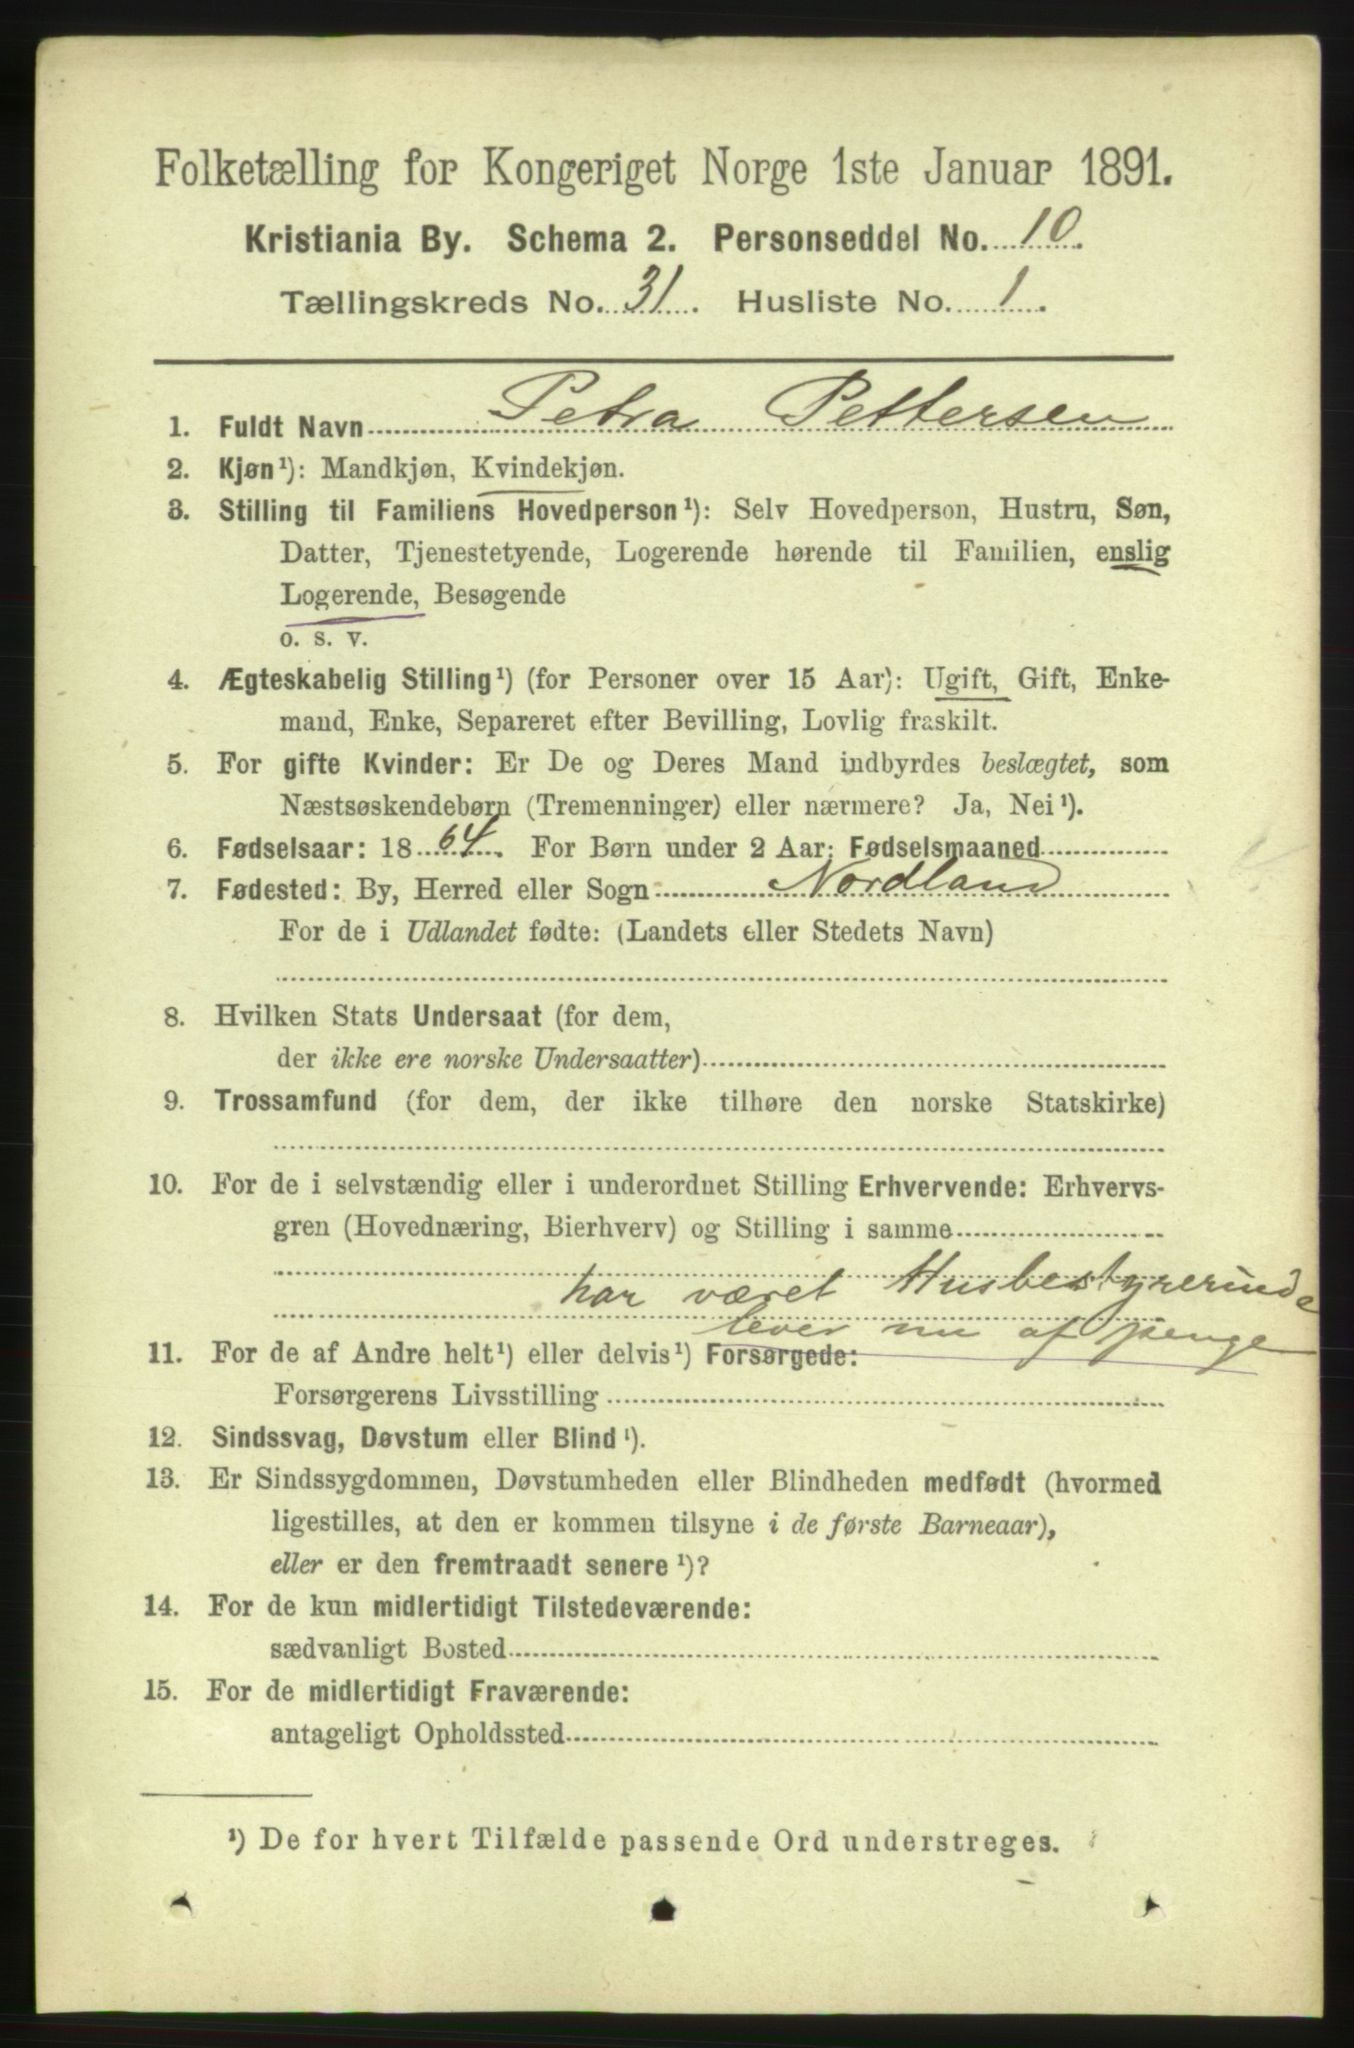 Folketælling for Kongeriget Norge 1ste Januar 1891.
Kristiania By. Schema 2. Personseddel No. 10.
Tællingskreds No. 31. Husliste No. 1.
1. Fuldt Navn Petra Pettersen
2. Kjøn¹): Mandkjøn, Kvindekjøn.
3. Stilling til Familiens Hovedperson¹): Selv Hovedperson, Hustru, Søn,
Datter, Tjenestetyende, Logerende hørende til Familien, enslig
Logerende, Besøgende
o. s. v.
4. Ægteskabelig Stilling¹) (for Personer over 15 Aar): Ugift, Gift, Enke-
mand, Enke, Separeret efter Bevilling, Lovlig fraskilt.
5. For gifte Kvinder: Er De og Deres Mand indbyrdes beslægtet, som
Næstsøskendebørn (Tremenninger) eller nærmere? Ja, Nei¹).
6. Fødselsaar: 1864. For Børn under 2 Aar: Fødselsmaaned
7. Fødested: By, Herred eller Sogn Nordland
For de i Udlandet fødte: (Landets eller Stedets Navn)
8. Hvilken Stats Undersaat (for dem,
der ikke ere norske Undersaatter)
9. Trossamfund (for dem, der ikke tilhøre den norske Statskirke)
10. For de i selvstændig eller i underordnet Stilling Erhvervende: Erhvervs-
gren (Hovednæring, Bierhverv) og Stilling i samme
har været Husbestyrerinde
lever nu af penge
11. For de af Andre helt¹) eller delvis¹) Forsørgede:
Forsørgerens Livsstilling
12. Sindssvag, Døvstum eller Blind¹).
13. Er Sindssygdommen, Døvstumheden eller Blindheden medfødt (hvormed
ligestilles, at den er kommen tilsyne i de første Barneaar),
eller er den fremtraadt senere¹)?
14. For de kun midlertidigt Tilstedeværende:
sædvanligt Bosted
15. For de midlertidigt Fraværende:
antageligt Opholdssted
¹) De for hvert Tilfælde passende Ord understreges.